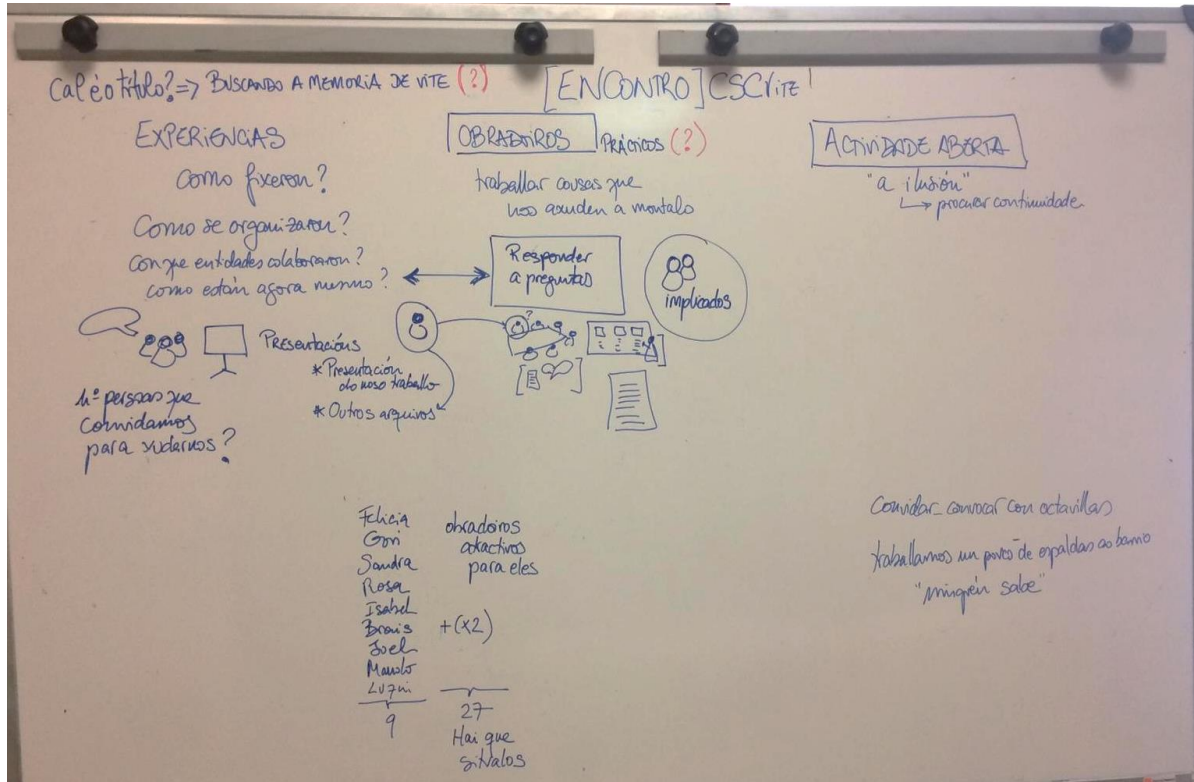 Cal é o título? => BUSCANDO A MEMORIA DE VITE (?)
[ENCONTRO] CSCVITE
EXPERIENCIAS
Como fixeron?
Como se organizaron?
con que entidades colaboraron?
como están agora mesmo?
PRESENTACIÓNS
* Presentación do noso traballo
* Outros arquivos
nº persoas que
convidamos
para xudarnos?
OBRADOIROS PRÁCTICOS (?)
traballar cousas que
nos axuden a montalo
Responder
a preguntas
implicados
ACTIVIDADE ABERTA
"a ilusión"
↳ procurar continuidade
Felicia
Gori
Sandra
Rosa
Isabel
Brais
Joel
Manolo
9
obradoiros
atractivos
para eles
+(x2)
27
Hai que
sitvalos
Convidar_convocar con octavillas
traballamos un pouco de espaldas ao barrio
"ninguén sabe"